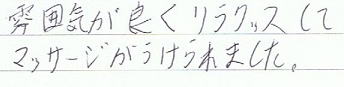 雰囲気が良くリラックスして
マッサージがうけられました。